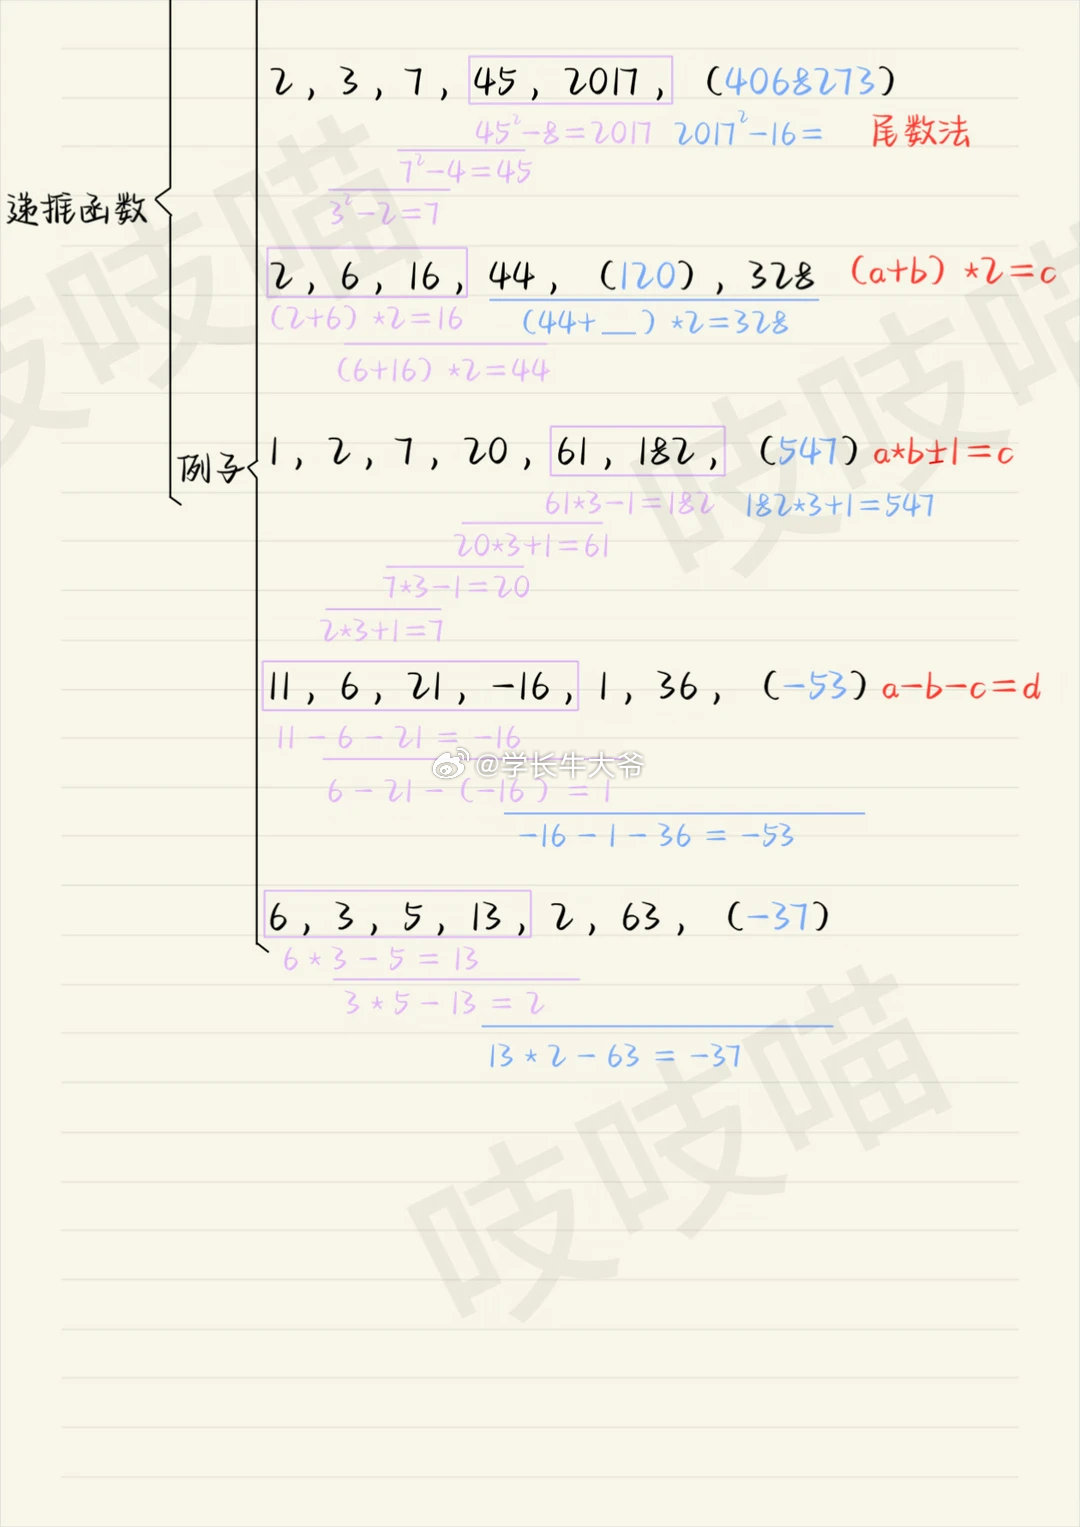 2, 3, 7, 45, 2017, (4068273)
45²-8=2017 2017²-16= 尾数法
7²-4=45
递推函数
3²-2=7
2, 6, 16, 44, (120), 328 (a+b)*2=c
(2+6)*2=16 (44+__)*2=328
(6+16)*2=44
例子
1, 2, 7, 20, 61, 182, (547) a*b±1=c
61*3-1=182 182*3+1=547
20*3+1=61
7*3-1=20
2*3+1=7
11, 6, 21, -16, 1, 36, (-53) a-b-c=d
11-6-21=-16
@学长牛大爷
6-21-(-16)=1
-16-1-36=-53
6, 3, 5, 13, 2, 63, (-37)
6*3-5=13
3*5-13=2
13*2-63=-37
吱吱喵
吱吱喵
吱吱喵